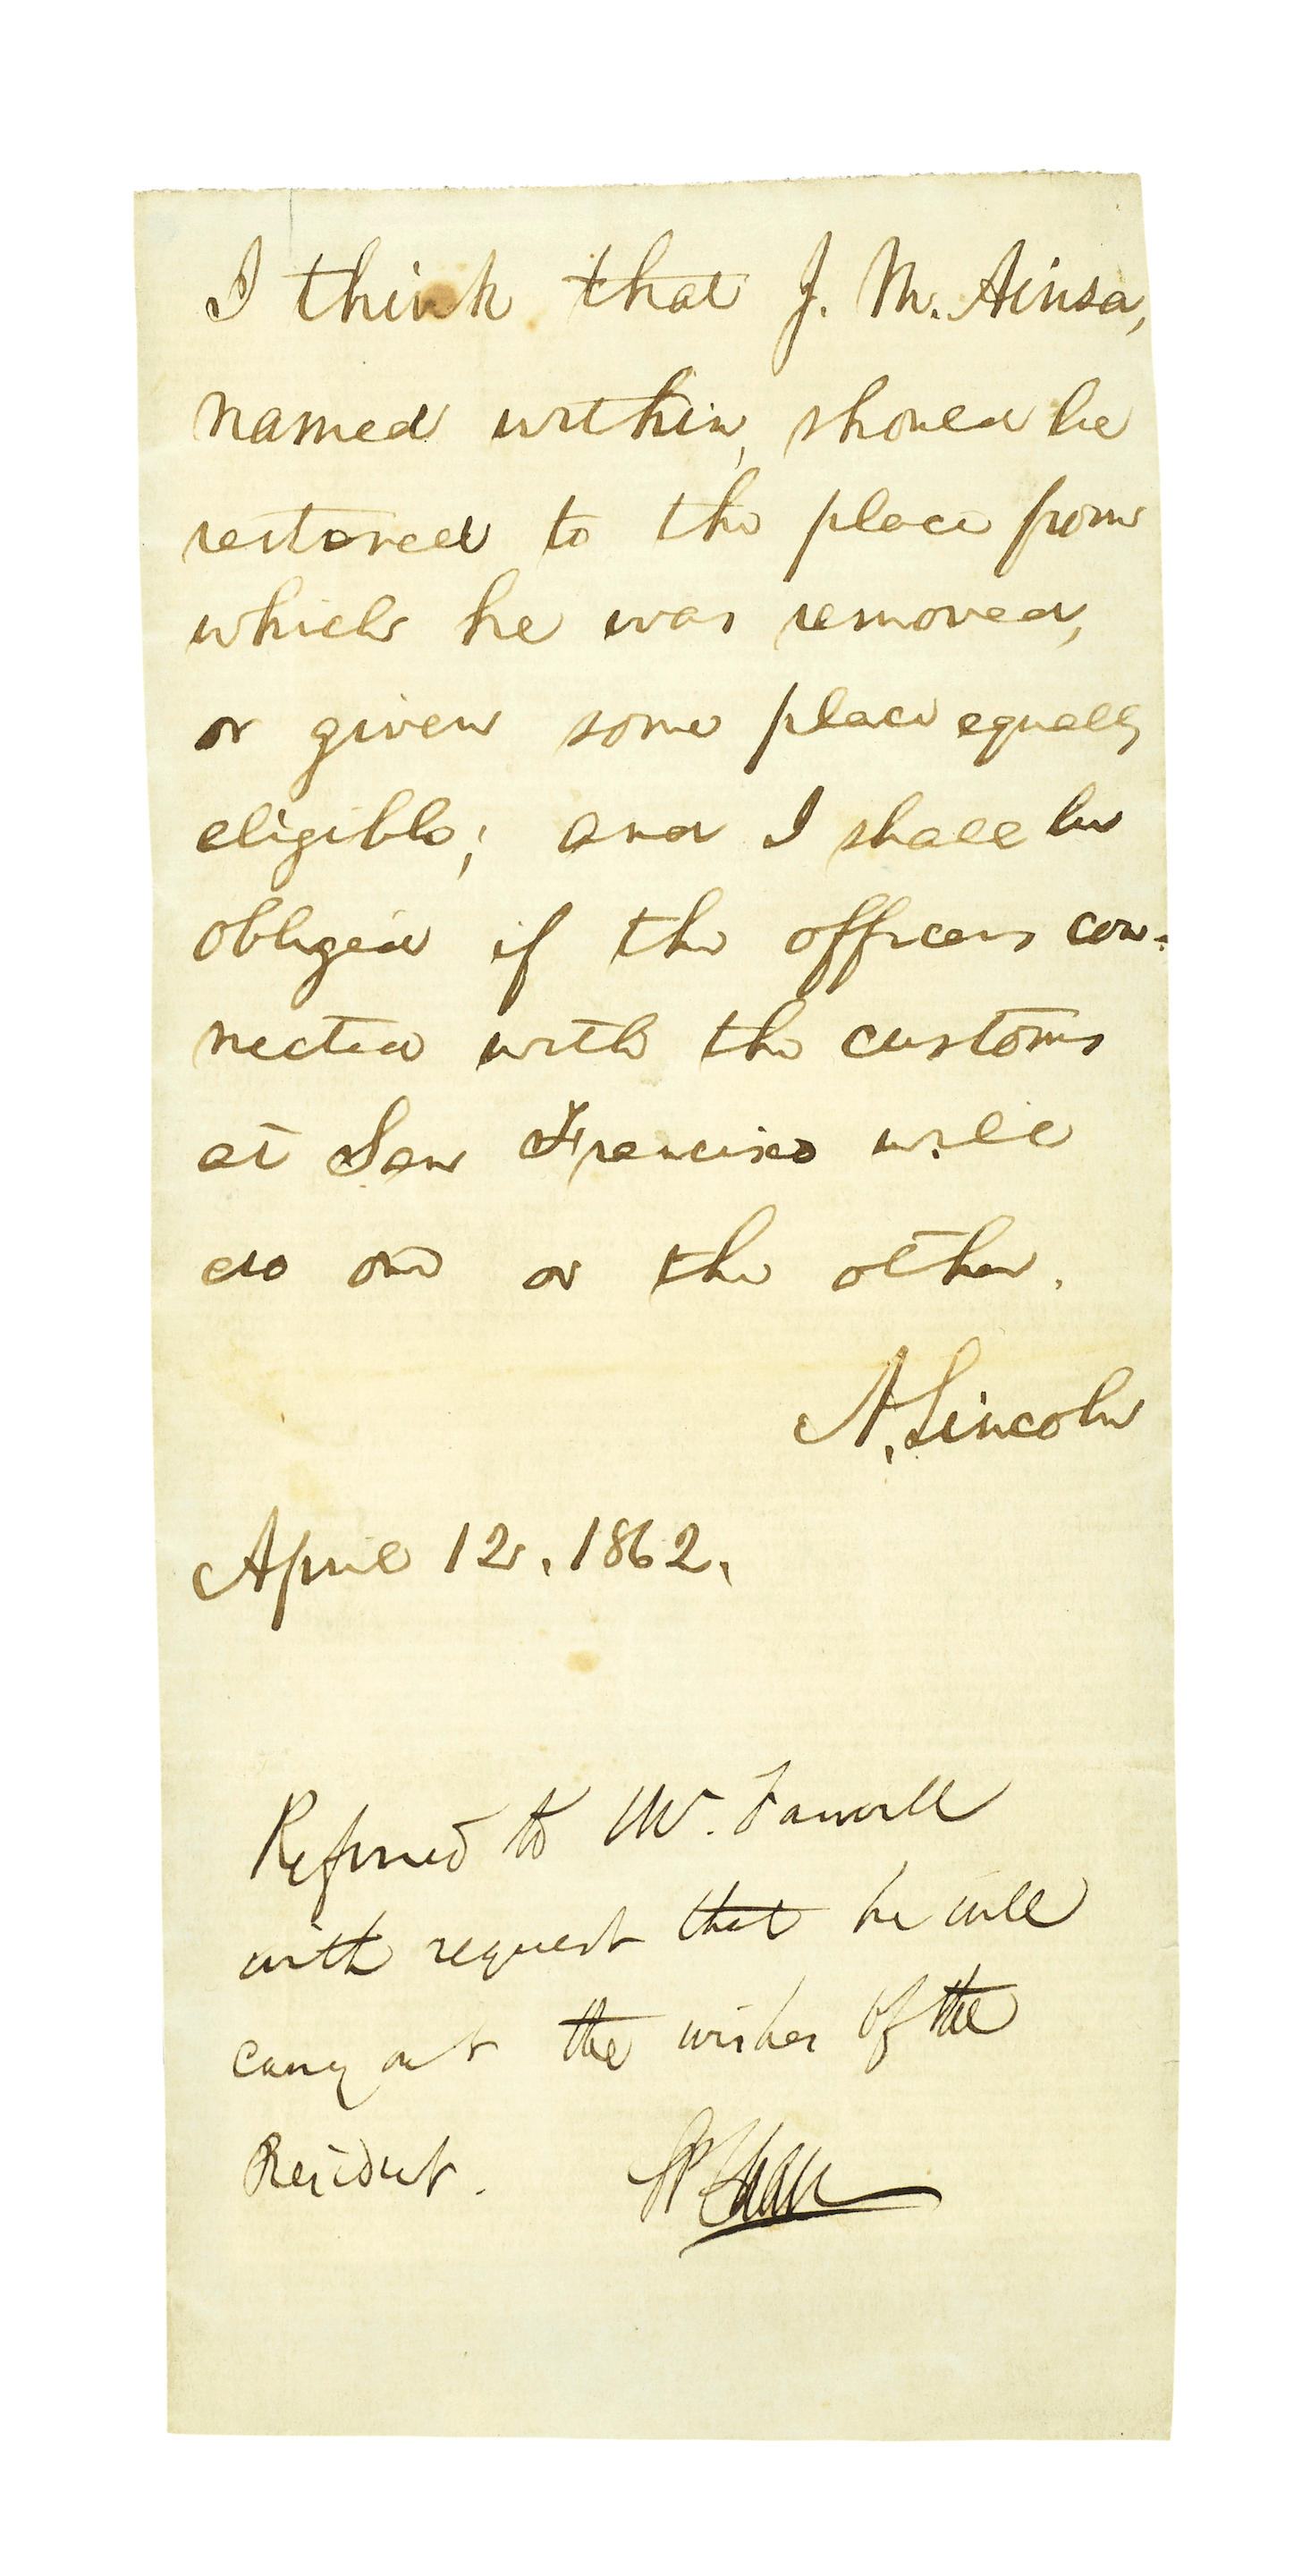 I think that J. M. Ainsa,
named within, should be
restored to the place from
which he was removed,
or given some place equally
eligible; and I shall be
obliged if the officers con-
nected with the customs
at San Francisco will
do one or the other.
A. Lincoln
April 12, 1862.
Referred to Mr. Farwell
with request that he will
carry out the wishes of the
President. SPChase